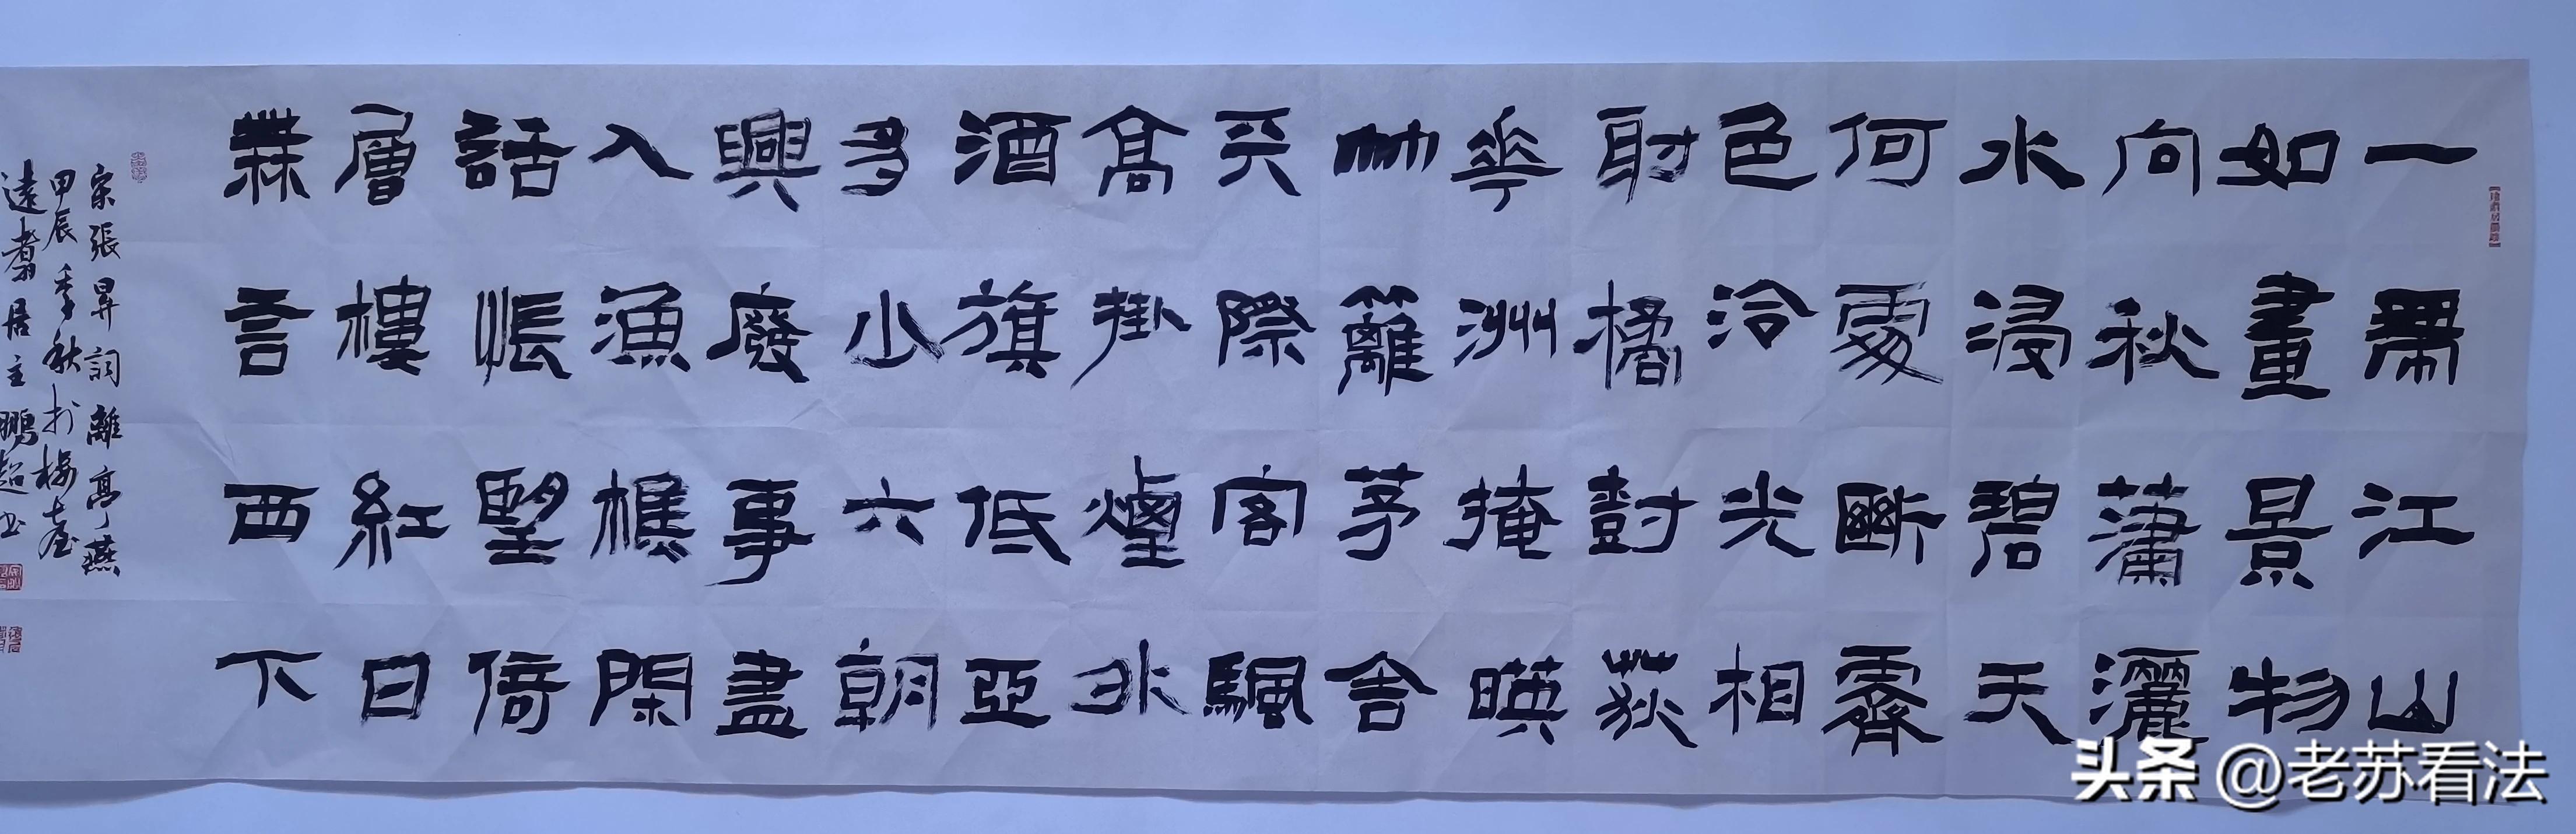 一帶江山
如畫景物
向秋瀟灑
水浸碧天
何處斷霽
色冷光相
射橘對荻
華洲掩映
竹籬茅舍
天際客颿
高掛煙外
酒旗低亞
多少六朝
興廢事盡
入漁樵閑
話悵望倚
層樓紅日
無言西下
宋張昇詞離亭燕
甲辰季秋於梅臺
遠翥居主鵬超书
头条 @老苏看法